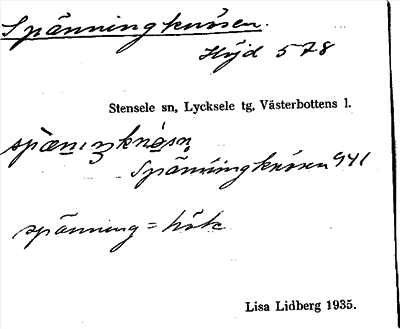 Spänningknösen.
Höjd 578
Stensele sn, Lycksele tg, Västerbottens l.
Spänningknösen 941
spänning = hök
Lisa Lidberg 1935.